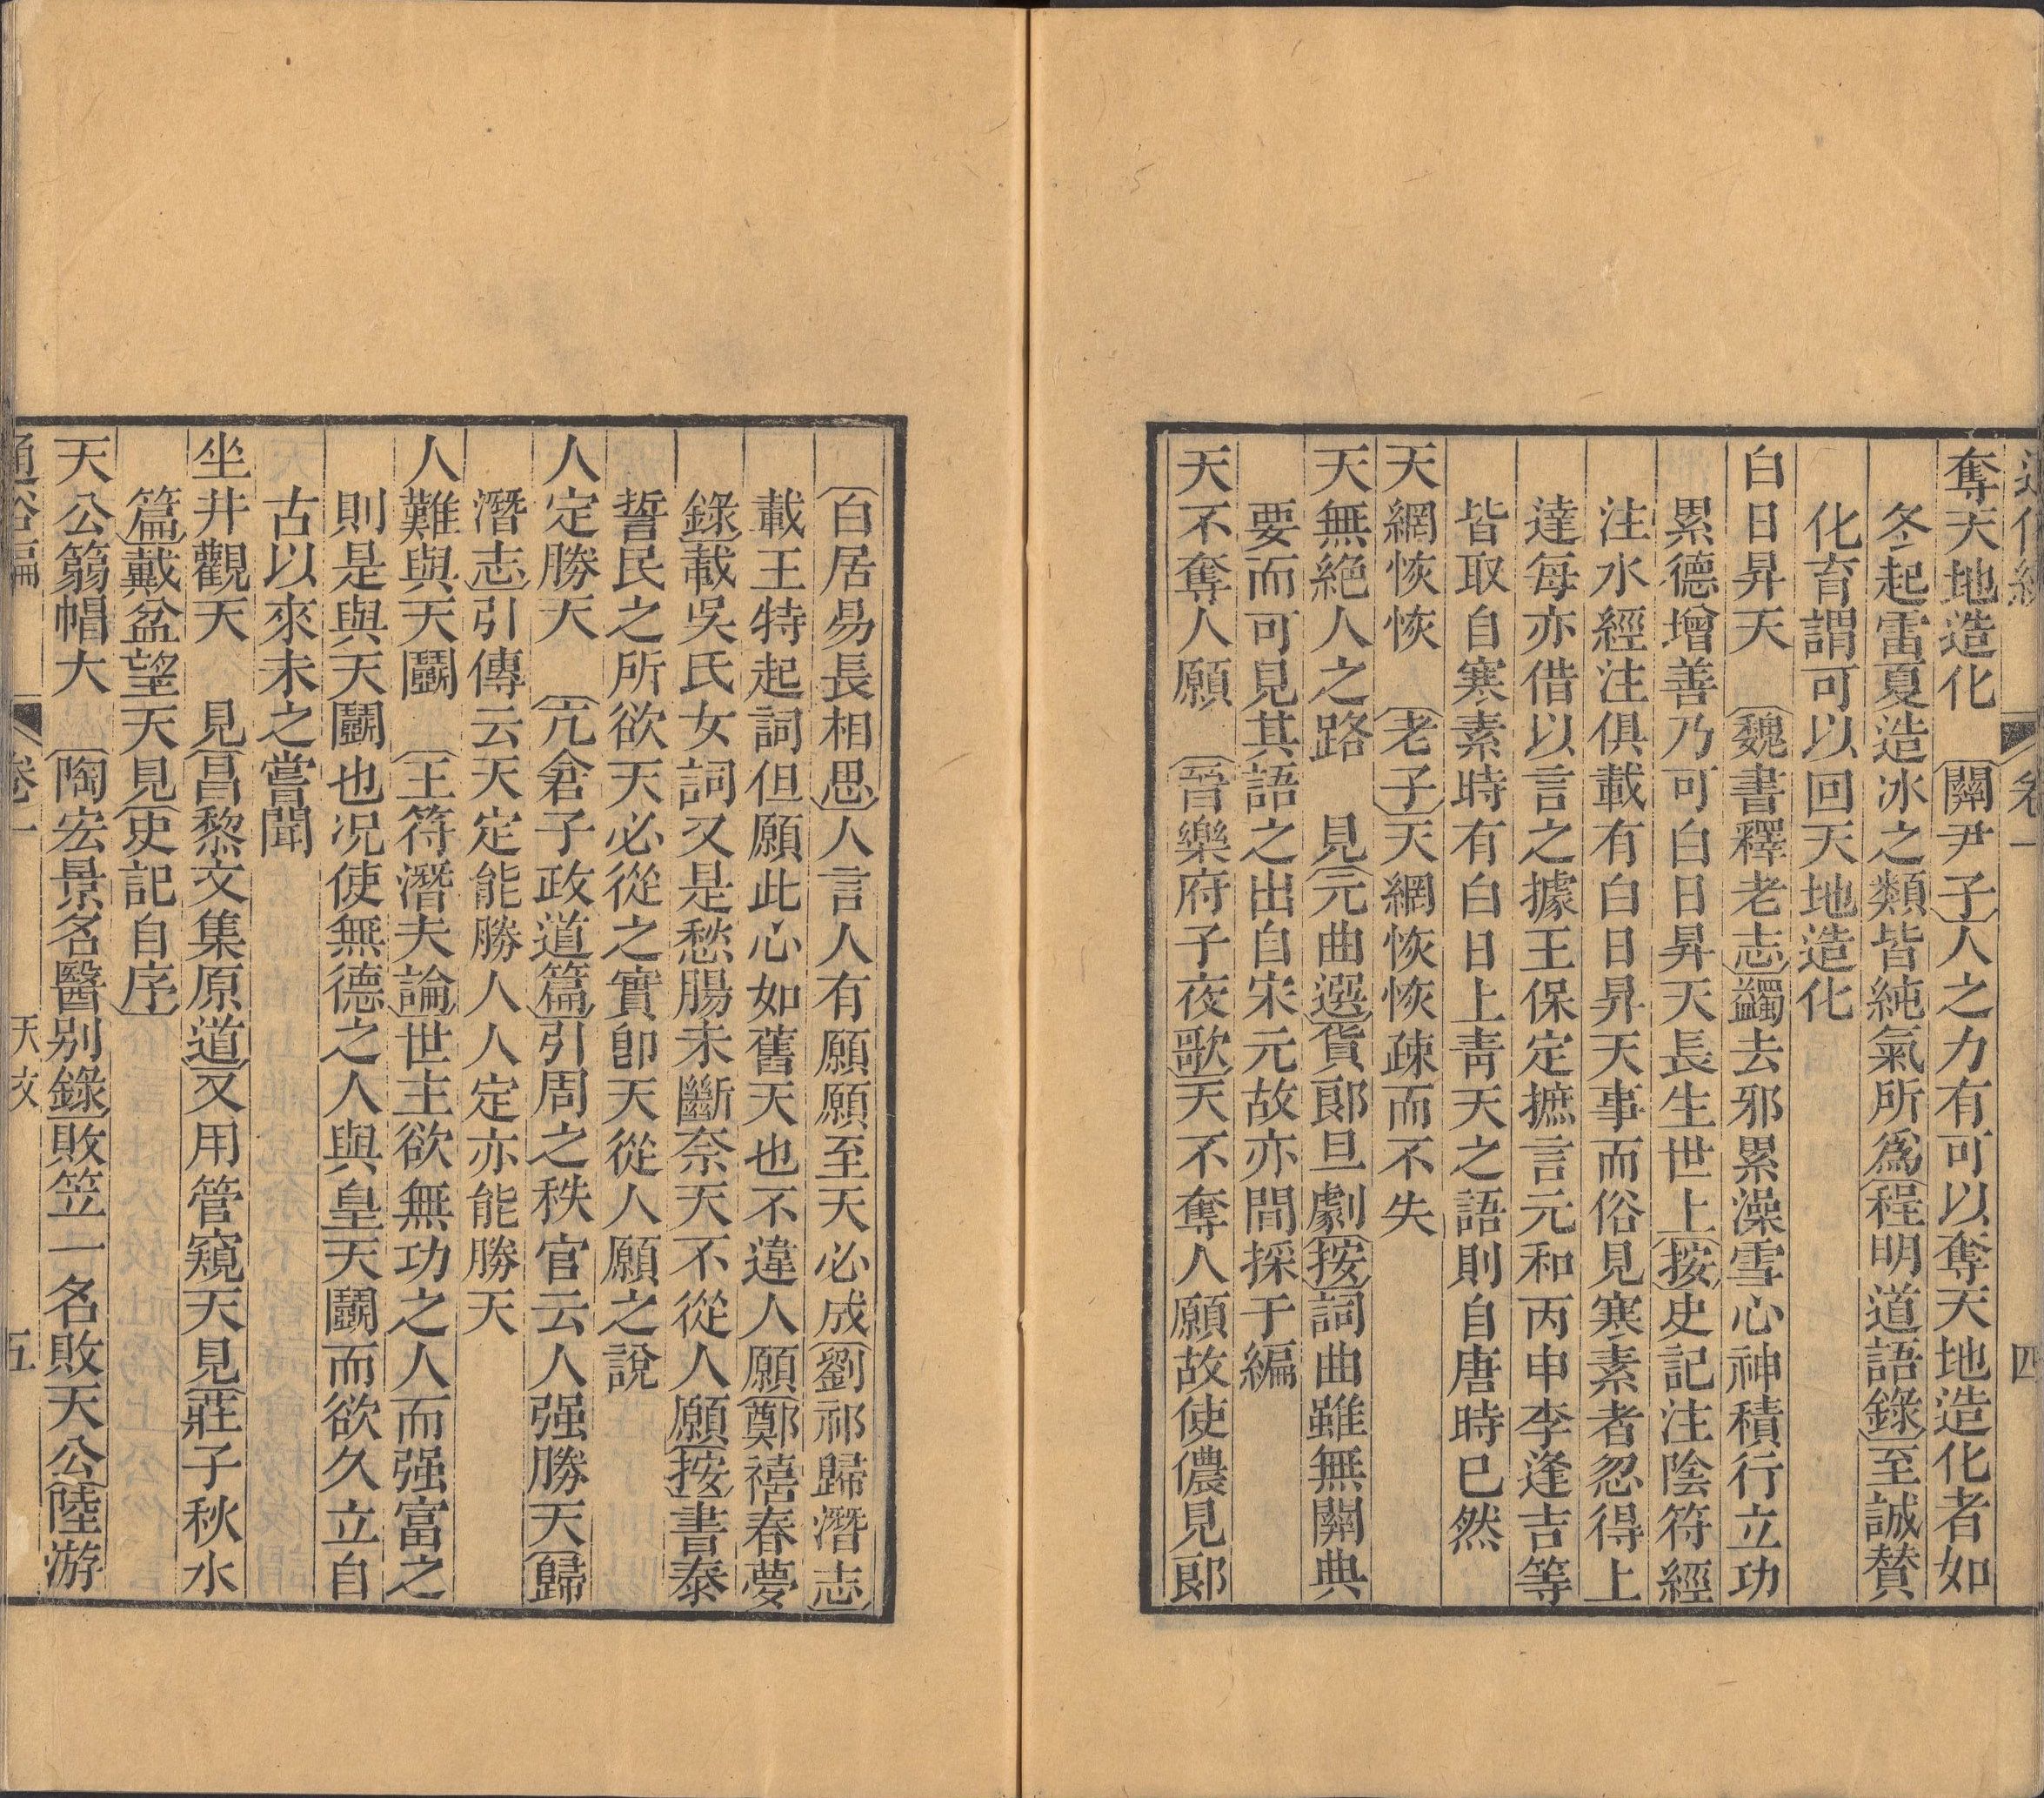 通俗編 卷一 四
奪天地造化 〔關尹子〕人之力有可以奪天地造化者如
冬起雷夏造冰之類皆純氣所爲〔程明道語錄〕至誠賛
化育謂可以回天地造化
白日昇天 〔魏書釋老志〕蠲去邪累澡雪心神積行立功
累德增善乃可白日昇天長生世上〔按〕史記注陰符經
注水經注俱載有白日昇天事而俗見寒素者忽得上
達每亦借以言之據王保定摭言元和丙申李逢吉等
皆取自寒素時有白日上靑天之語則自唐時已然
天網恢恢 〔老子〕天網恢恢疎而不失
天無絶人之路 見〔元曲選〕貨郎旦劇〔按〕詞曲雖無關典
要而可見其語之出自宋元故亦間採于編
天不奪人願 〔晉樂府子夜歌〕天不奪人願故使儂見郎
〔白居易長相思〕人言人有願願至天必成〔劉祁歸潛志〕
載王特起詞但願此心如舊天也不違人願〔鄭禧春夢
錄〕載吳氏女詞又是愁腸未斷奈天不從人願〔按〕書泰
誓民之所欲天必從之實卽天從人願之說
人定勝天 〔亢倉子政道篇〕引周之秩官云人强勝天〔歸
潛志〕引傳云天定能勝人人定亦能勝天
人難與天鬭 〔王符潛夫論〕世主欲無功之人而强富之
則是與天鬭也况使無德之人與皇天鬭而欲久立自
古以來未之嘗聞
坐井觀天 見〔昌黎文集原道〕又用管窺天見〔莊子秋水
篇〕戴盆望天見〔史記自序〕
天公篛帽大 〔陶宏景名醫別錄〕敗笠一名敗天公〔陸游
通俗編 卷一 天文 五